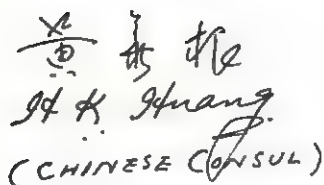 黄
H K Huang
(CHINESE CONSUL)